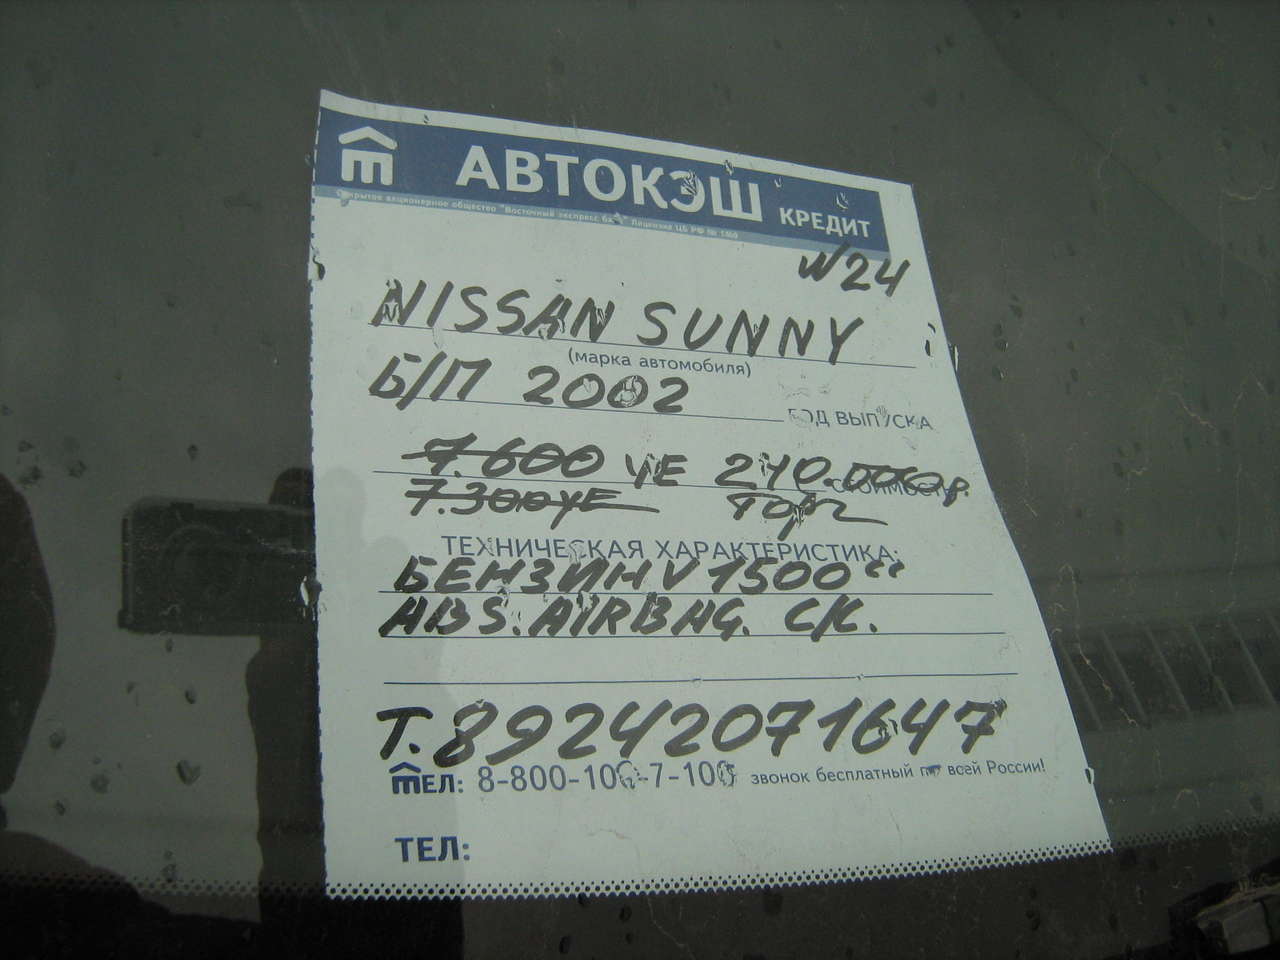 АВТОКЭШ КРЕДИТ
Открытое акционерное общество "Восточный экспресс банк" Лицензия ЦБ РФ № 1460
W24
NISSAN SUNNY
(марка автомобиля)
Б/П 2002 ГОД ВЫПУСКА
7.600 УЕ 240.000р.
СТОИМОСТЬ
7.300УЕ Торг
ТЕХНИЧЕСКАЯ ХАРАКТЕРИСТИКА:
БЕНЗИН V 1500"
ABS. AIRBAG. С/С.
Т. 89242071647
ТЕЛ: 8-800-100-7-100 звонок бесплатный по всей России!
ТЕЛ: